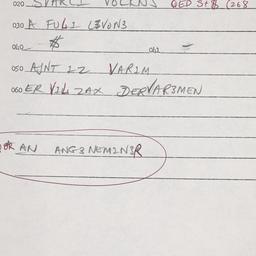 020 SVARLI VOLKNS QED St8 (268
030 A FULI LEVON3
040 $ 042 =
050 AJNT 22 VARIM
060 ER VIL ZAX DERVAR3MEN
AN ANG8NEM2N3R